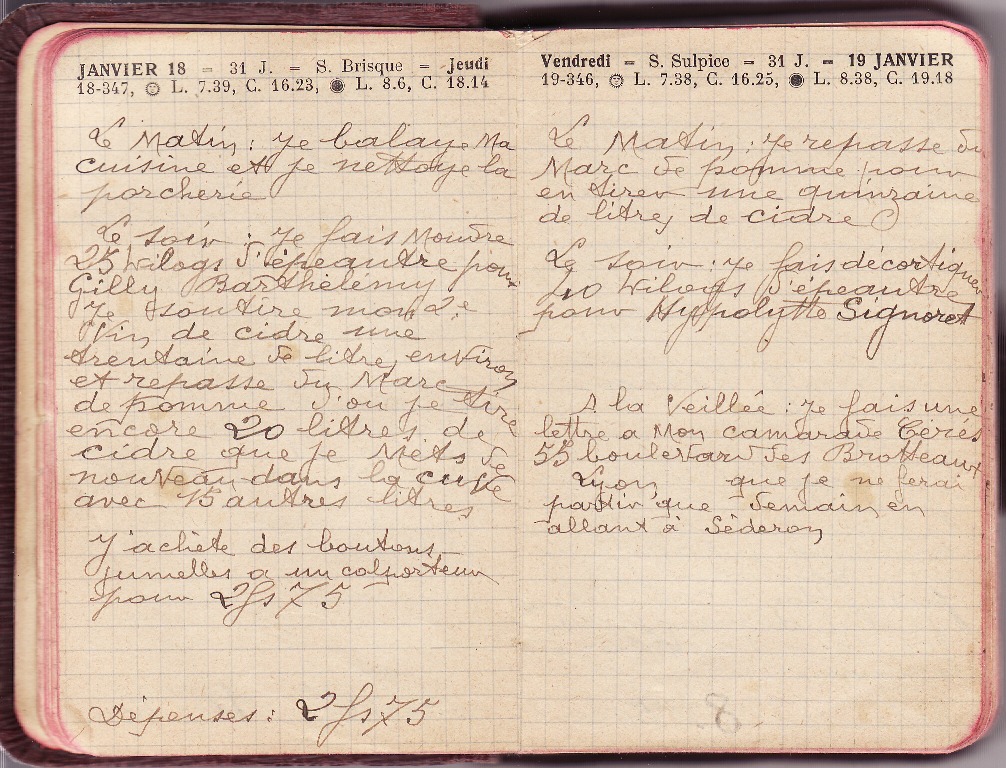 JANVIER 18 – 31 J. = S. Brisque – Jeudi
18-347, L. 7.39, C. 16.23, L. 8.6, C. 18.14
Le Matin : je balaye Ma
cuisine et je nettoye la
porcherie
Le soir : je fais Moudre
25 kilogs d'épeautre pour
Gilly Barthélémy
Je soutire mon 2e
Vin de cidre une
trentaine de litre, environ
et repasse du Marc
de pomme d'ou je tire
encore 20 litres de
cidre que je Mets de
nouveau dans la cuve
avec 15 autres litres
J'achète des boutons
jumelles a un colporteur
pour 2fs 75
Dépenses : 2fs 75
Vendredi – S. Sulpice – 31 J. – 19 JANVIER
19-346, L. 7.38, C. 16.25, L. 8.38, C. 19.18
Le Matin : je repasse du
Marc de pomme pour
en tirer une quinzaine
de litres de cidre
Le soir : je fais décortiquer
40 kilogs d'épeautre
pour Hyppolytte Signoret
A la Veillée : je fais une
lettre a Mon camarade Cérés
55 boulevard des Brotteaux
Lyon que je ne ferai
partir que demain en
allant à Séderon